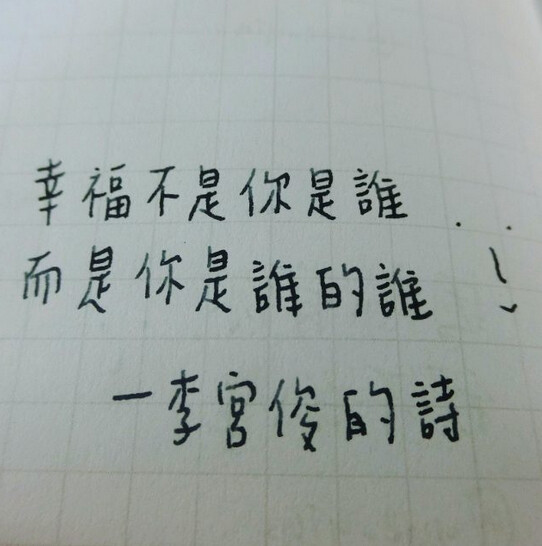 幸福不是你是誰
而是你是誰的誰
一李宮俊的詩